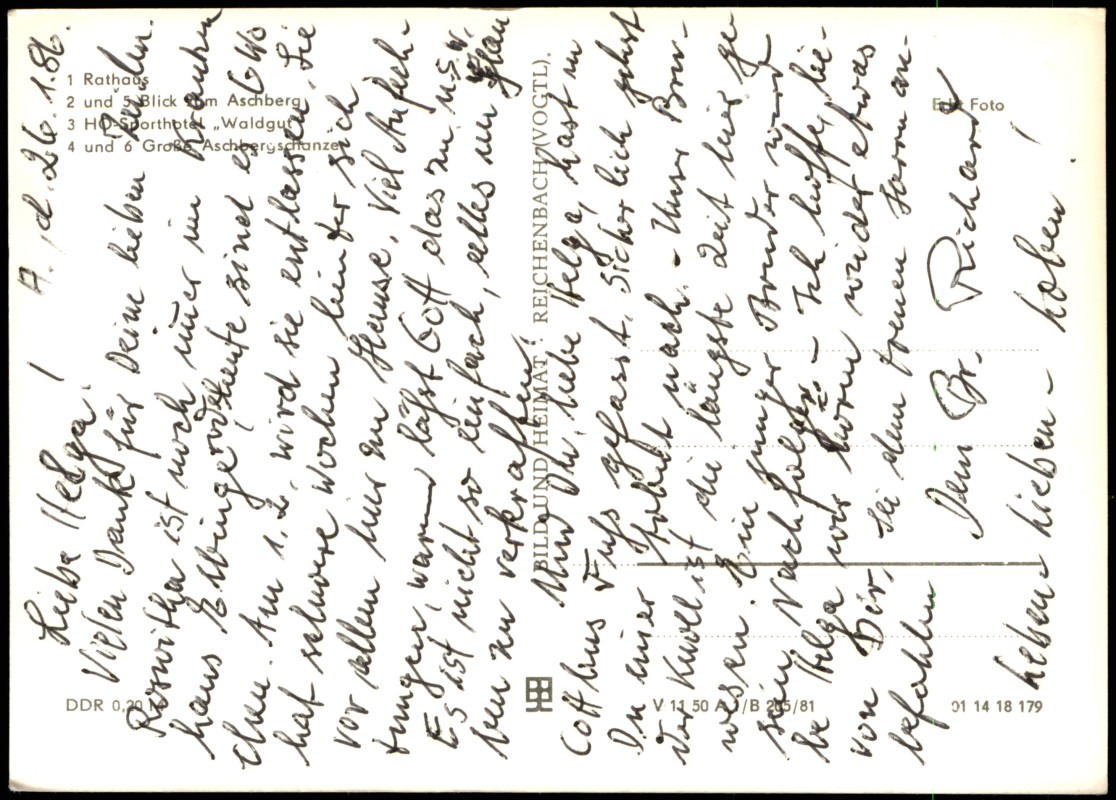 1 Rathaus
2 und 5 Blick zum Aschberg
3 HO-Sporthotel „Waldgut"
4 und 6 Große Aschbergschanze
Echt Foto
BILD UND HEIMAT · REICHENBACH (VOGTL).
DDR 0,20
V 11 50 A 1/B 265/81
01 14 18 179
A., d. 26.1.86.
Liebe Helga!
Vielen Dank für Deine lieben Zeilen.
Roswitha ist noch immer im Kranken
haus Ewinge
chen. Am 1.2. wird sie entlassen. Sie
hat schwere Wochen hinter sich
vor allem hier zu Hause. Viel Anfech-
tungen, warum läßt Gott das zu u.s.w.
Es ist nicht so einfach, alles im Glau
ben zu verkraften!
Und Du, liebe Helga, hast in
Cottbus Fuß gefasst. Sicherlich gehst
Du einer Arbeit nach. - Unser Bru-
der Knoll ist die längste Zeit hier ge
wesen. Ein junger Bruder wird
sein Nachfolger. - Ich hoffe, lie-
be Helga wir hören wieder etwas
von Dir. Sei dem treuen Herrn an-
befohlen
Dein Br. Richard
Leben - Lieben - Loben!